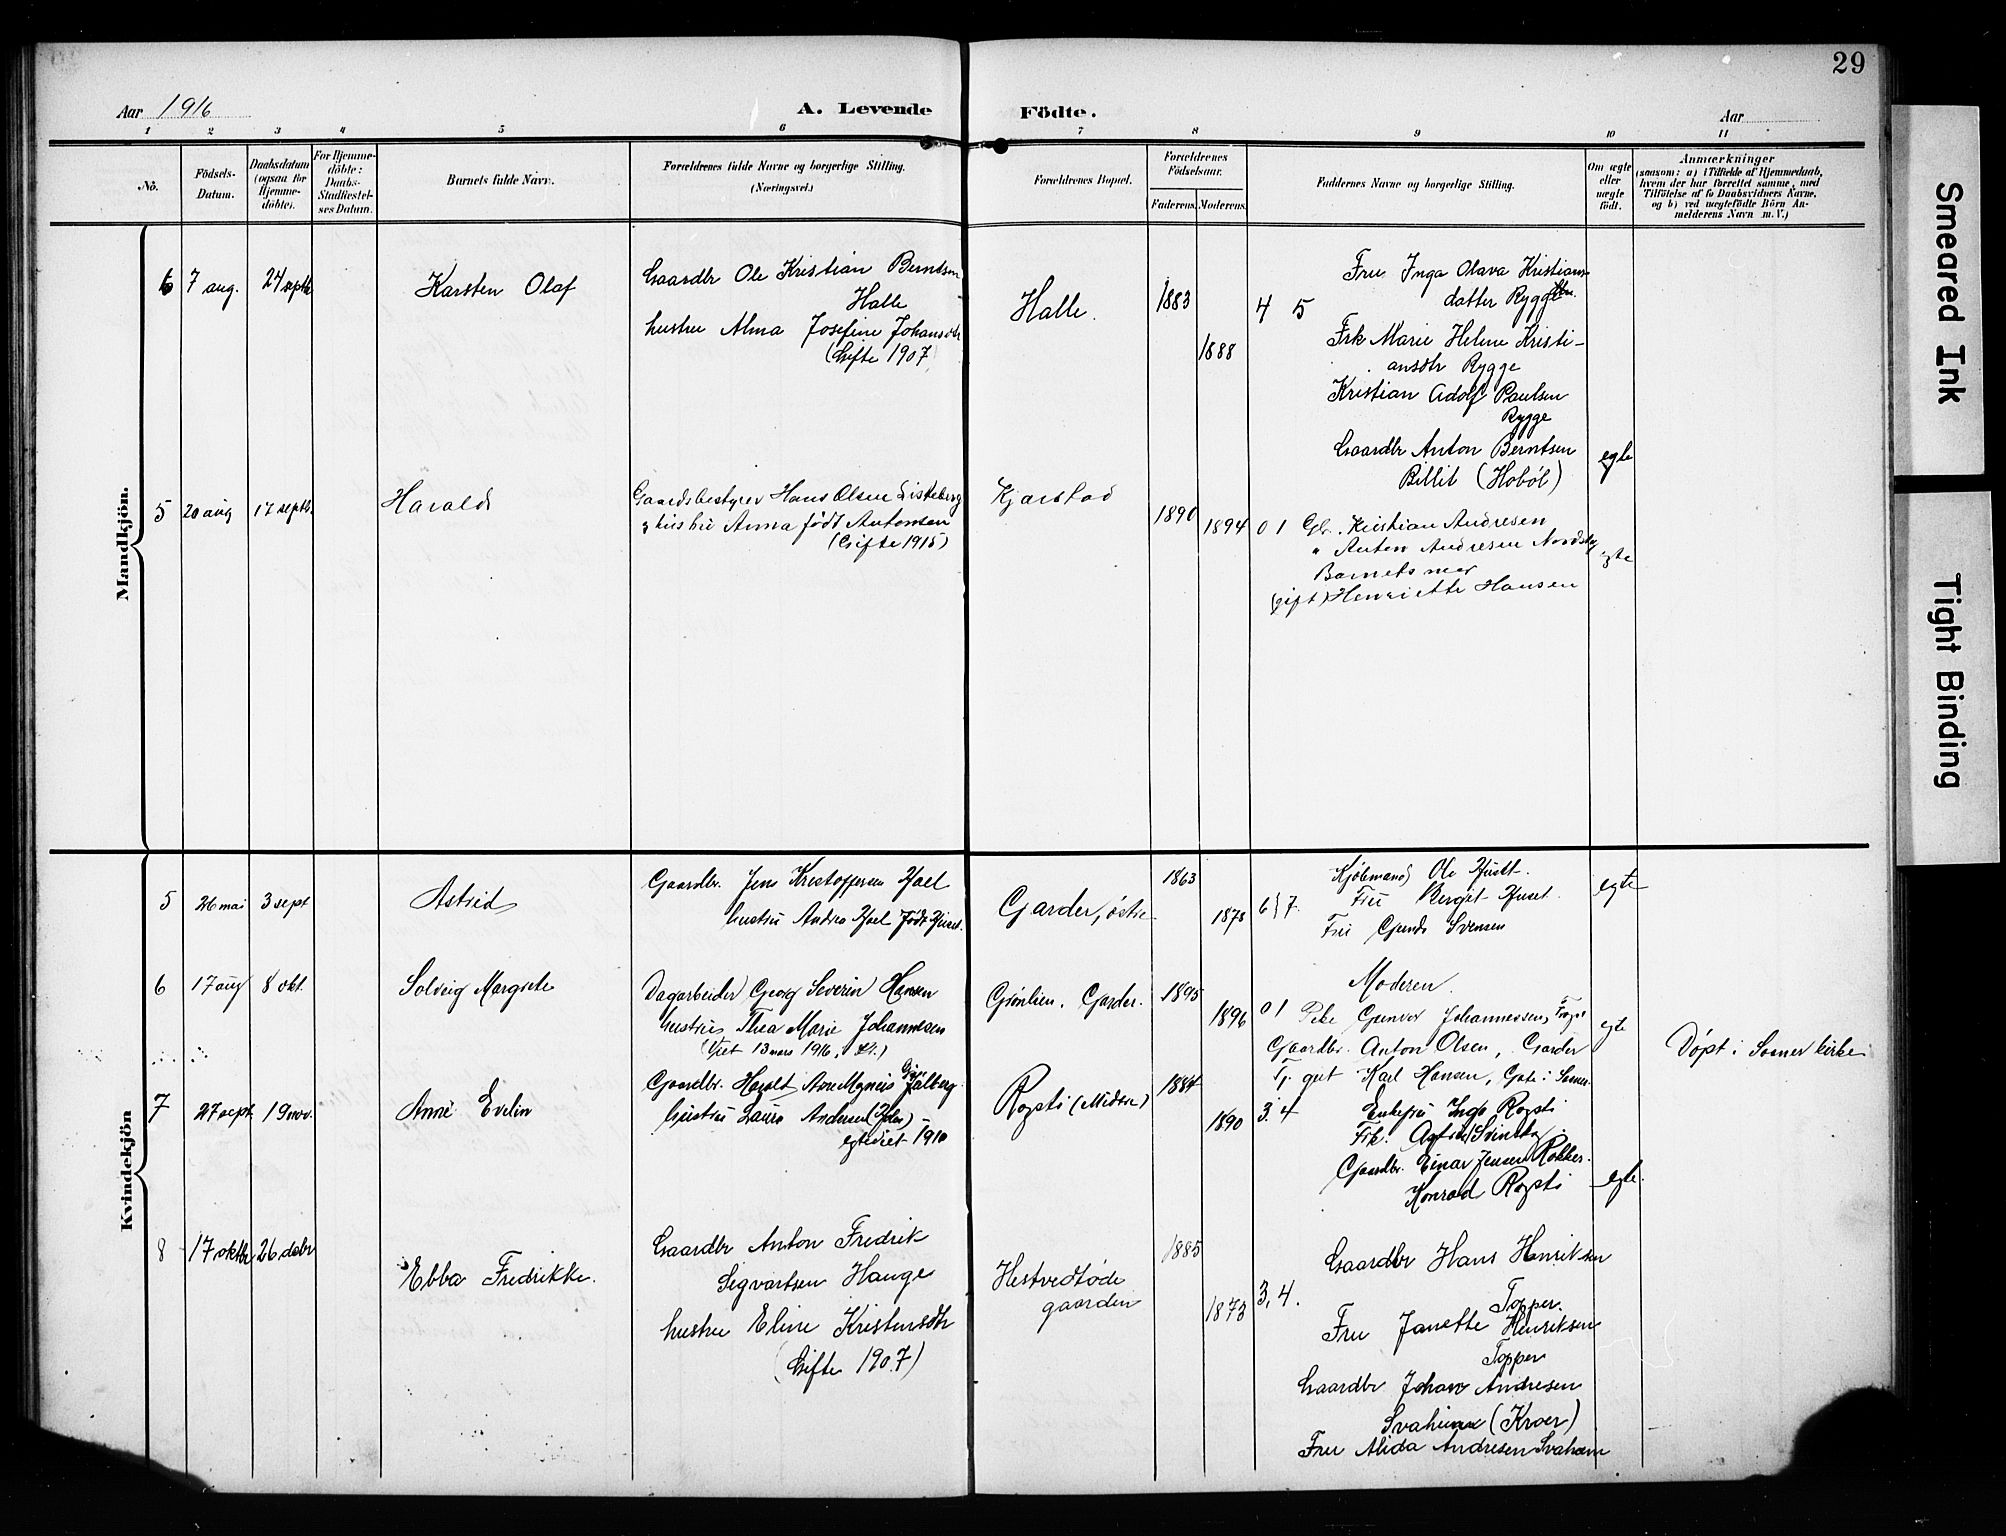 29
Aar 1916
A. Levende Födte.
Aar
1 2 3 4 5 6 7 8 9 10 11
No.
Födsels-
Datum.
Daabsdatum
(ogsaa for
Hjemme-
döbte).
For Hjemme-
döbte:
Daabs-
Stadfæstel-
ses Datum.
Barnets fulde Navn.
Forældrenes fulde Navne og borgerlige Stilling.
(Næringsvei.)
Forældrenes Bopæl.
Forældrenes
Födselsaar.
Faderens. Moderens.
Faddernes Navne og borgerlige Stilling.
Om ægte
eller
uægte
födt.
Anmærkninger
(saasom: a) i Tilfælde af Hjemmedaab,
hvem der har forrettet samme, med
Tilföielse af to Daabsvidners Navne,
og b) ved uægtefödte Börn An-
melderens Navn m. V.)
Mandkjön.
6 7 aug. 24 septbr
Karsten Olaf
Gaardbr Ole Kristian Berntsen
Halle
hustru Alma Josefine Johansdtr
(Gifte 1907)
Halle.
1883
1888
4 5
Fru Inga Olava Kristians-
datter Rygge
Frk Marie Helene Kristi-
ansdtr Rygge
Kristian Adolf Paulsen
Rygge
Gaardbr Anton Berntsen
Billit (Hobøl)
egte
5 20 aug 17 septb.
Harald
Gaardsbestyrer Hans Olsen
hustru Anna født Antonsen
(Gifte 1915)
Kjærstad
1890
1894
0 1
Gbr. Kristian Andresen
" Anton Andresen Nordskog
Barnets mor
(gift) Henriette Hansen
egte
Kvindekjön
5 26 mai 3 sept
Astrid
Gaardbr. Jens Kristoffersen
hustru Andrea født
Garder, østre.
1863
1878
6 7.
Kjøbmand Ole
Fru Bergit
Fru Gunda Svensen
egte
6 17 aug 8 okt.
Solveig Margrete
Dagarbeider Georg Severin Hansen
hustru Thea Marie Johannesen
(Viet 13 mars 1916,
Grønlien, Garder.
1895
1896
0 1
Moderen.
Pike Gunvor Johannessen,
Gaardbr. Anton Olsen, Garder
Tj. gut Karl Hansen,
egte
Døpt i Soner kirke
7 27 sept 19 nov.
Anne Evelin
Gaardbr. Harald
hustru Laura Andersen
egteviet 1910
Rogsti (Midtre)
1884
1890
3. 4
Enkefru Inga Rogsti
Frk.
Gaardbr. Einar Jensen Rokker.
Konrad Rogsti
egte.
8 17 oktbr 26 debr
Ebba Fredrikke.
Gaardbr Anton Fredrik
Sigvartsen Hauge
hustru Eline Kristensdtr
(Gifte 1907)
Hestvedtøde
gaarden
1885
1873
3, 4.
Gaardbr Hans Henriksen
Topper.
Fru Janette Henriksen
Topper
Gaardbr Johan Andresen
(Kroer)
Fru Alida Andresen
Smeared Ink
Tight Binding